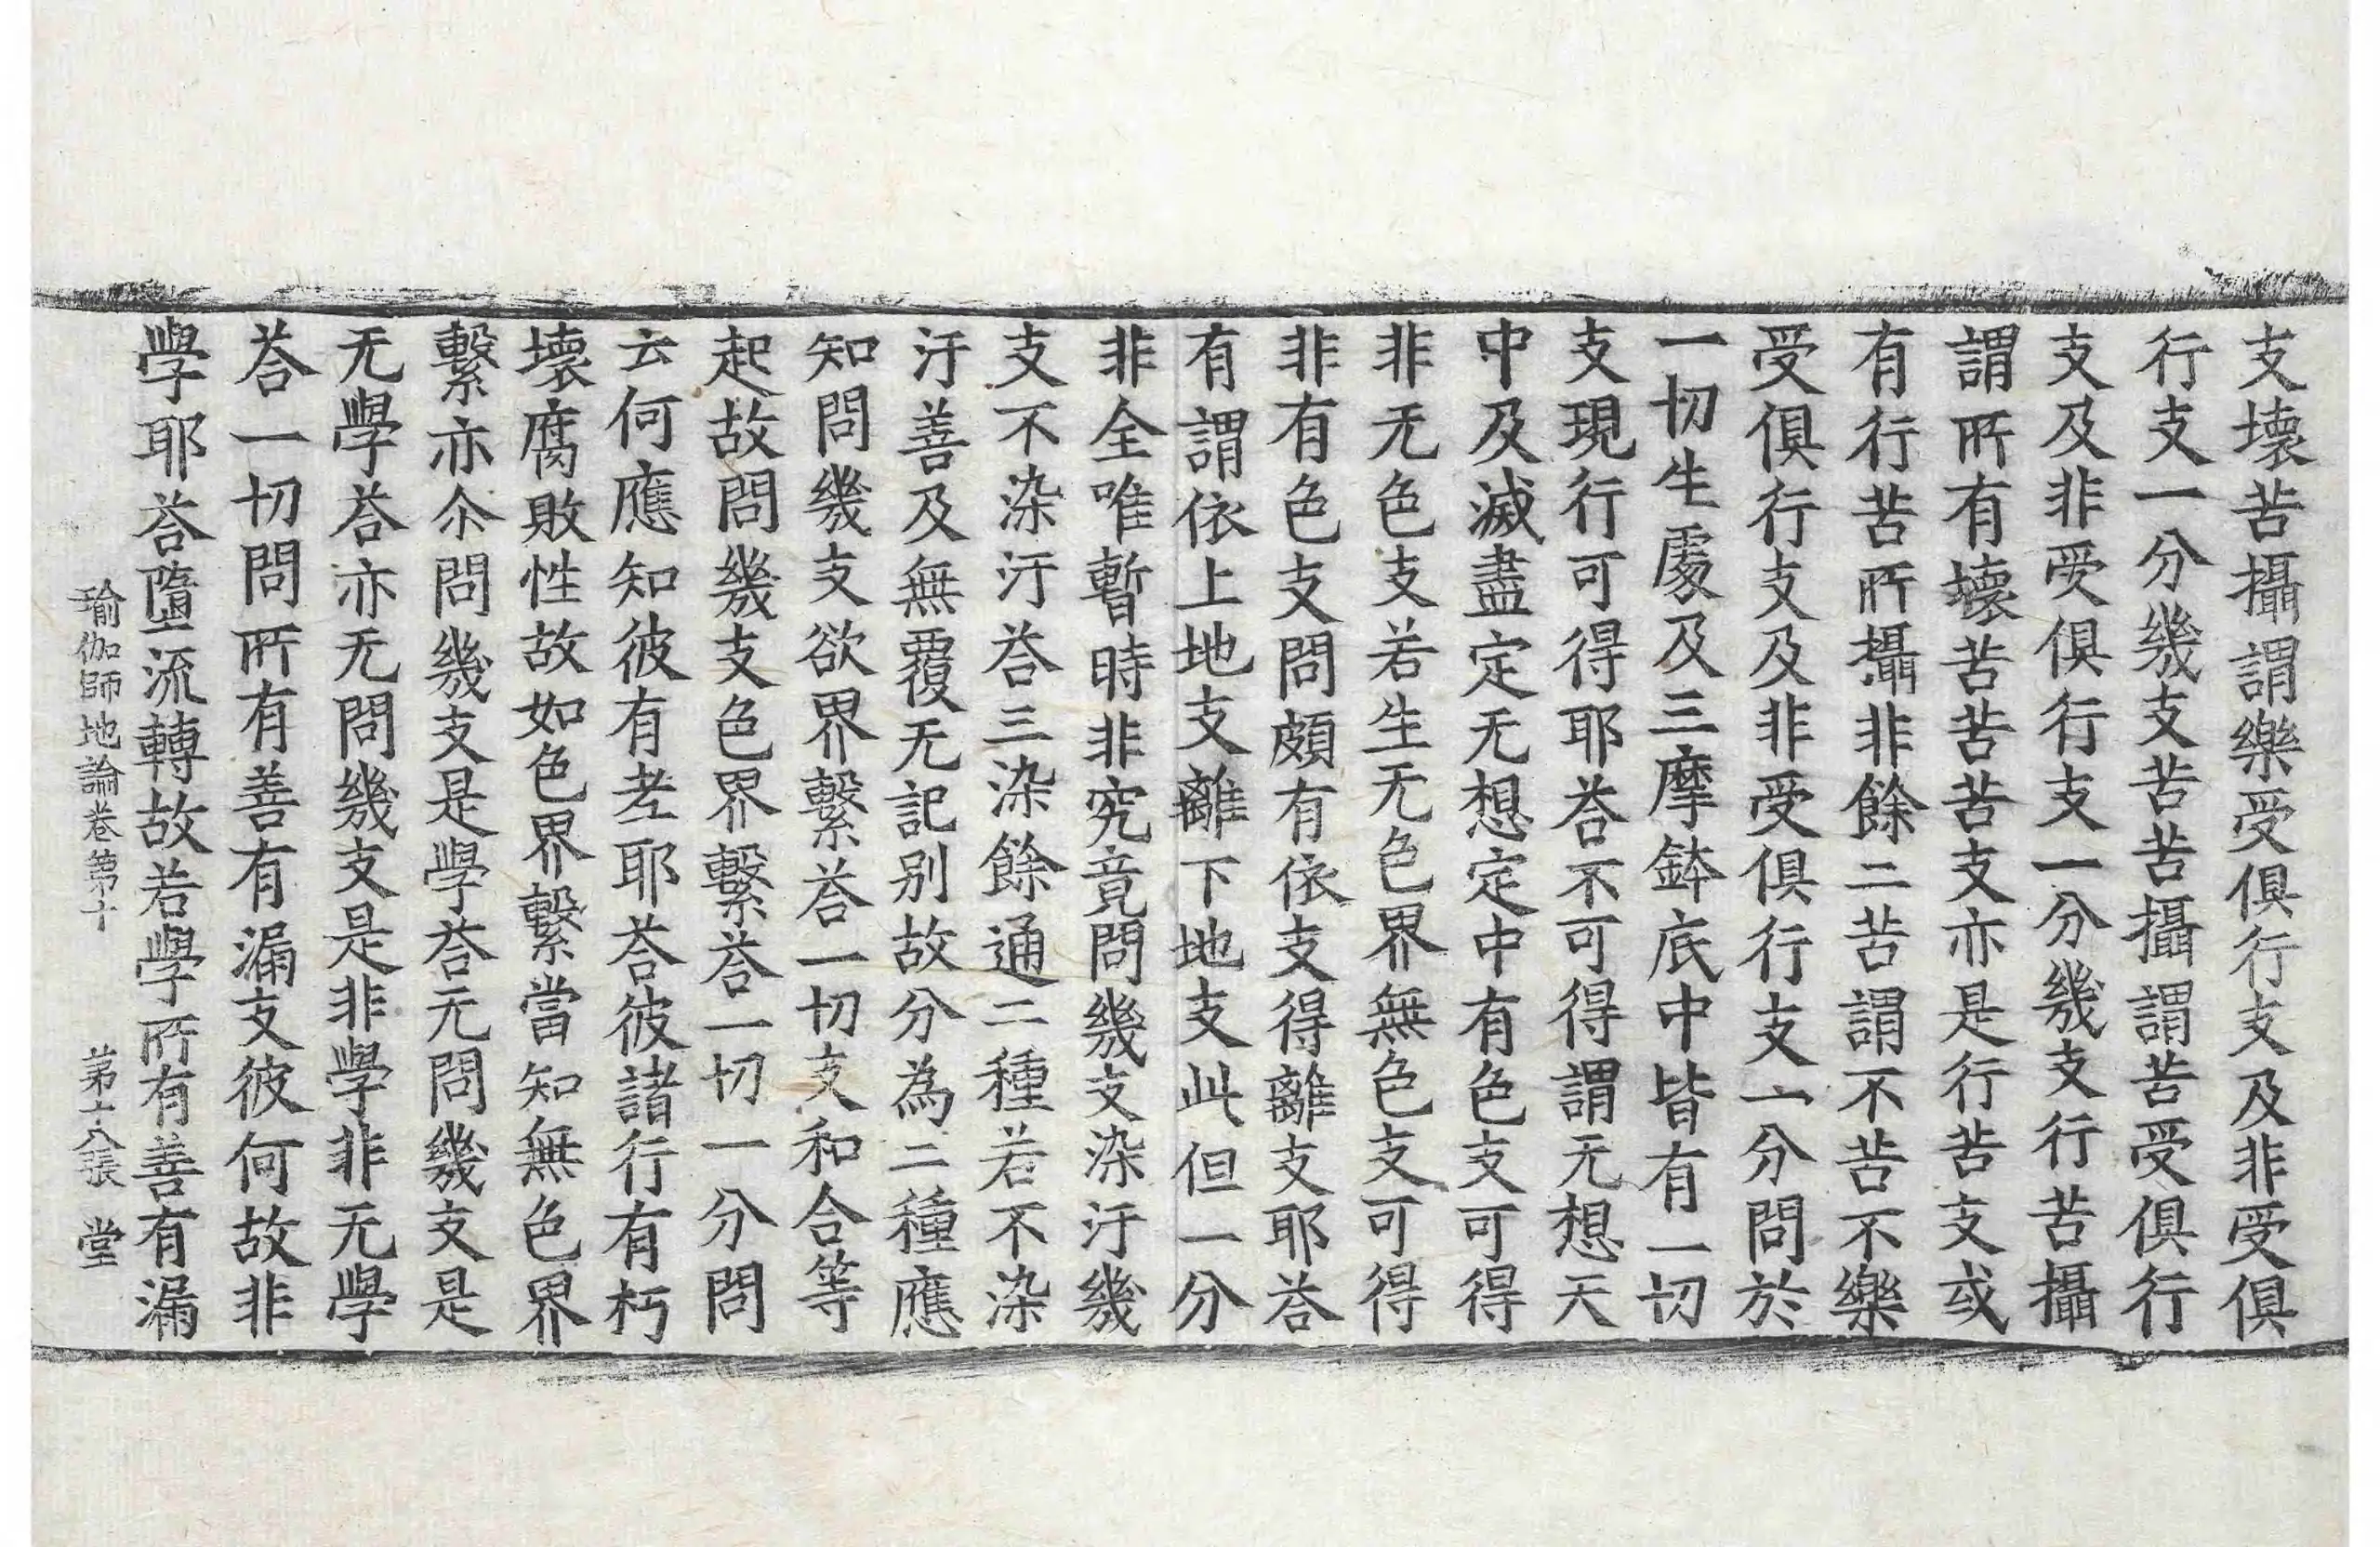 支壞苦攝謂樂受俱行支及非受俱
行支一分幾支苦苦攝謂苦受俱行
支及非受俱行支一分幾支行苦攝
謂所有壞苦苦苦支亦是行苦支或
有行苦所攝非餘二苦謂不苦不樂
受俱行支及非受俱行支一分問於
一切生處及三摩鉢底中皆有一切
支現行可得耶荅不可得謂无想天
中及滅盡定无想定中有色支可得
非无色支若生无色界無色支可得
非有色支問頗有依支得離支耶荅
有謂依上地支離下地支此但一分
非全唯暫時非究竟問幾支染汙幾
支不染汙荅三染餘通二種若不染
汙善及無覆无記别故分為二種應
知問幾支欲界繫荅一切支和合等
起故問幾支色界繫荅一切一分問
云何應知彼有老耶荅彼諸行有朽
壞腐敗性故如色界繫當知無色界
繫亦尒問幾支是學荅无問幾支是
无學荅亦无問幾支是非學非无學
荅一切問所有善有漏支彼何故非
學耶荅墮流轉故若學所有善有漏
瑜伽師地論卷第十　第十八張　堂